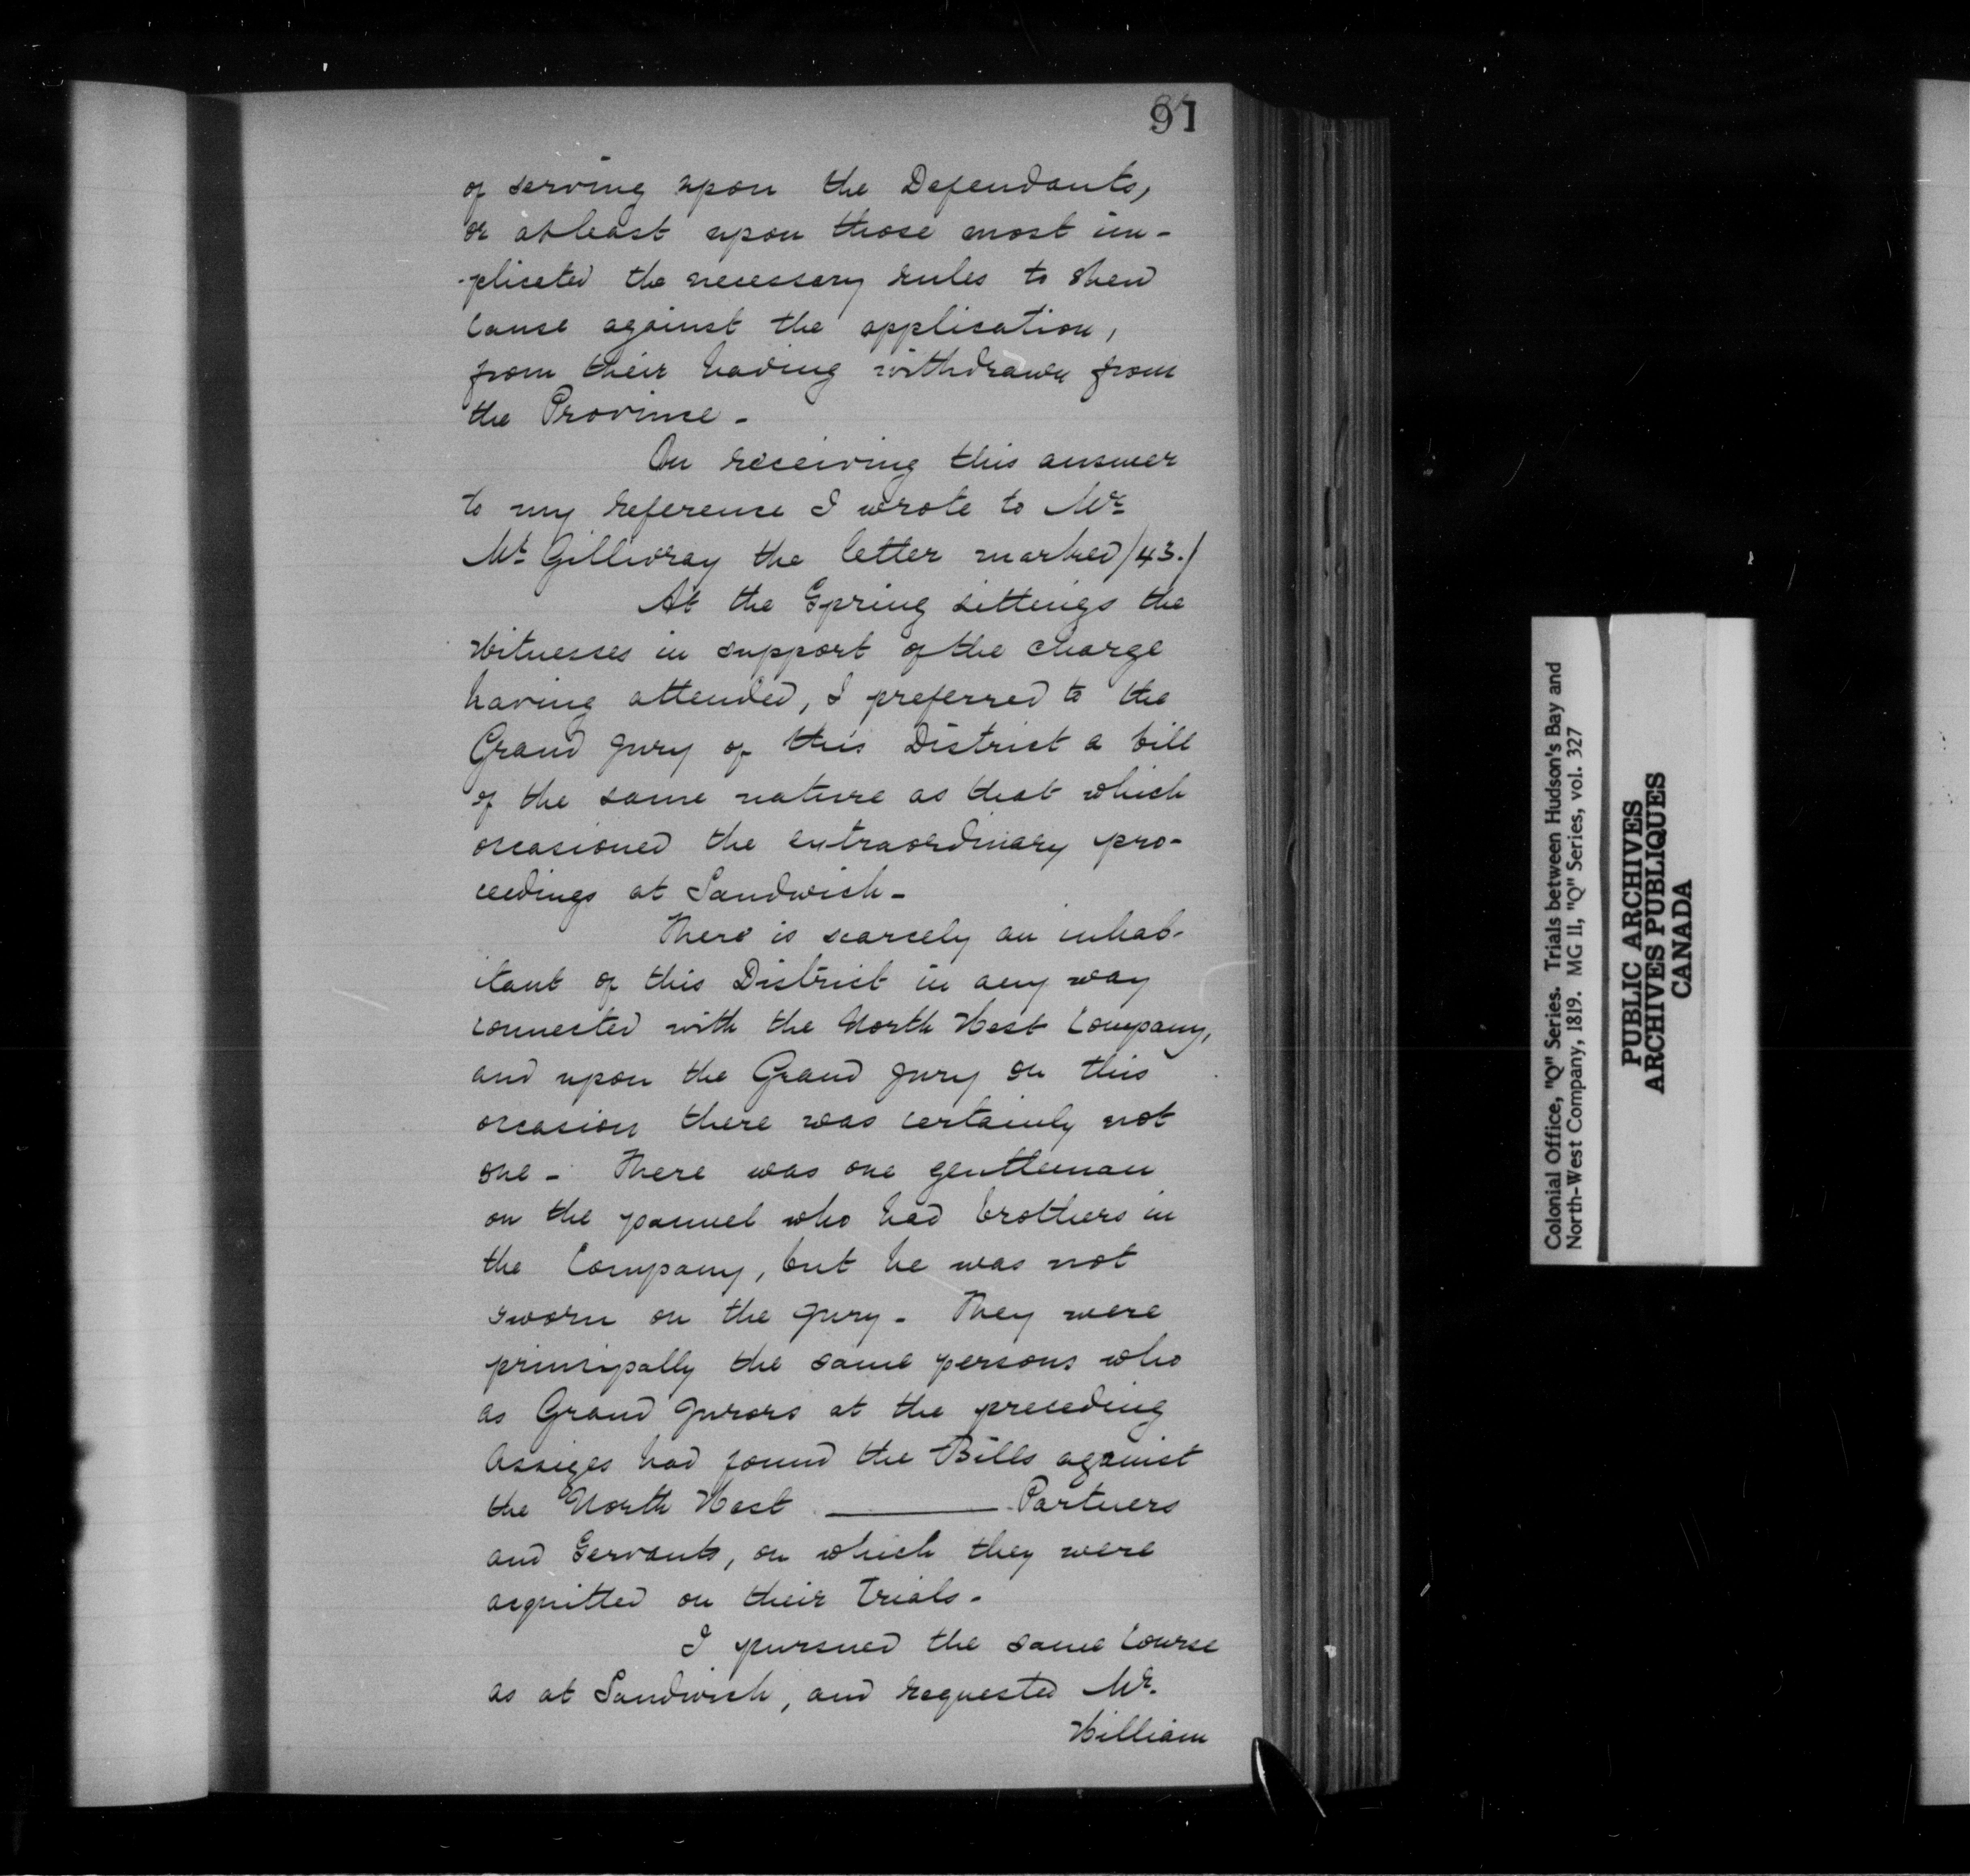 91
of serving upon the Defendants,
or at least upon those most im-
-plicated the necessary rules to shew
cause against the application,
from their having withdrawn from
the Province -
On receiving this answer
to my reference I wrote to Mr.
McGillivray the letter marked /43./
At the Spring sittings the
Witnesses in support of the charge
having attended, I preferred to the
Grand Jury of this District a bill
of the same nature as that which
occasioned the extraordinary pro-
ceedings at Sandwich -
There is scarcely an inhab-
itant of this District in any way
connected with the North West Company,
and upon the Grand Jury on this
occasion there was certainly not
one - There was one gentleman
on the pannel who had brothers in
the Company, but he was not
sworn on the Jury - They were
principally the same persons who
as Grand Jurors at the preceding
Assizes had found the Bills against
the North West ——— Partners
and Servants, on which they were
acquitted on their Trials -
I pursued the same course
as at Sandwich, and requested Mr.
William
Colonial Office, "Q" Series. Trials between Hudson's Bay and
North-West Company, 1819. MG 11, "Q" Series, vol. 327
PUBLIC ARCHIVES
ARCHIVES PUBLIQUES
CANADA